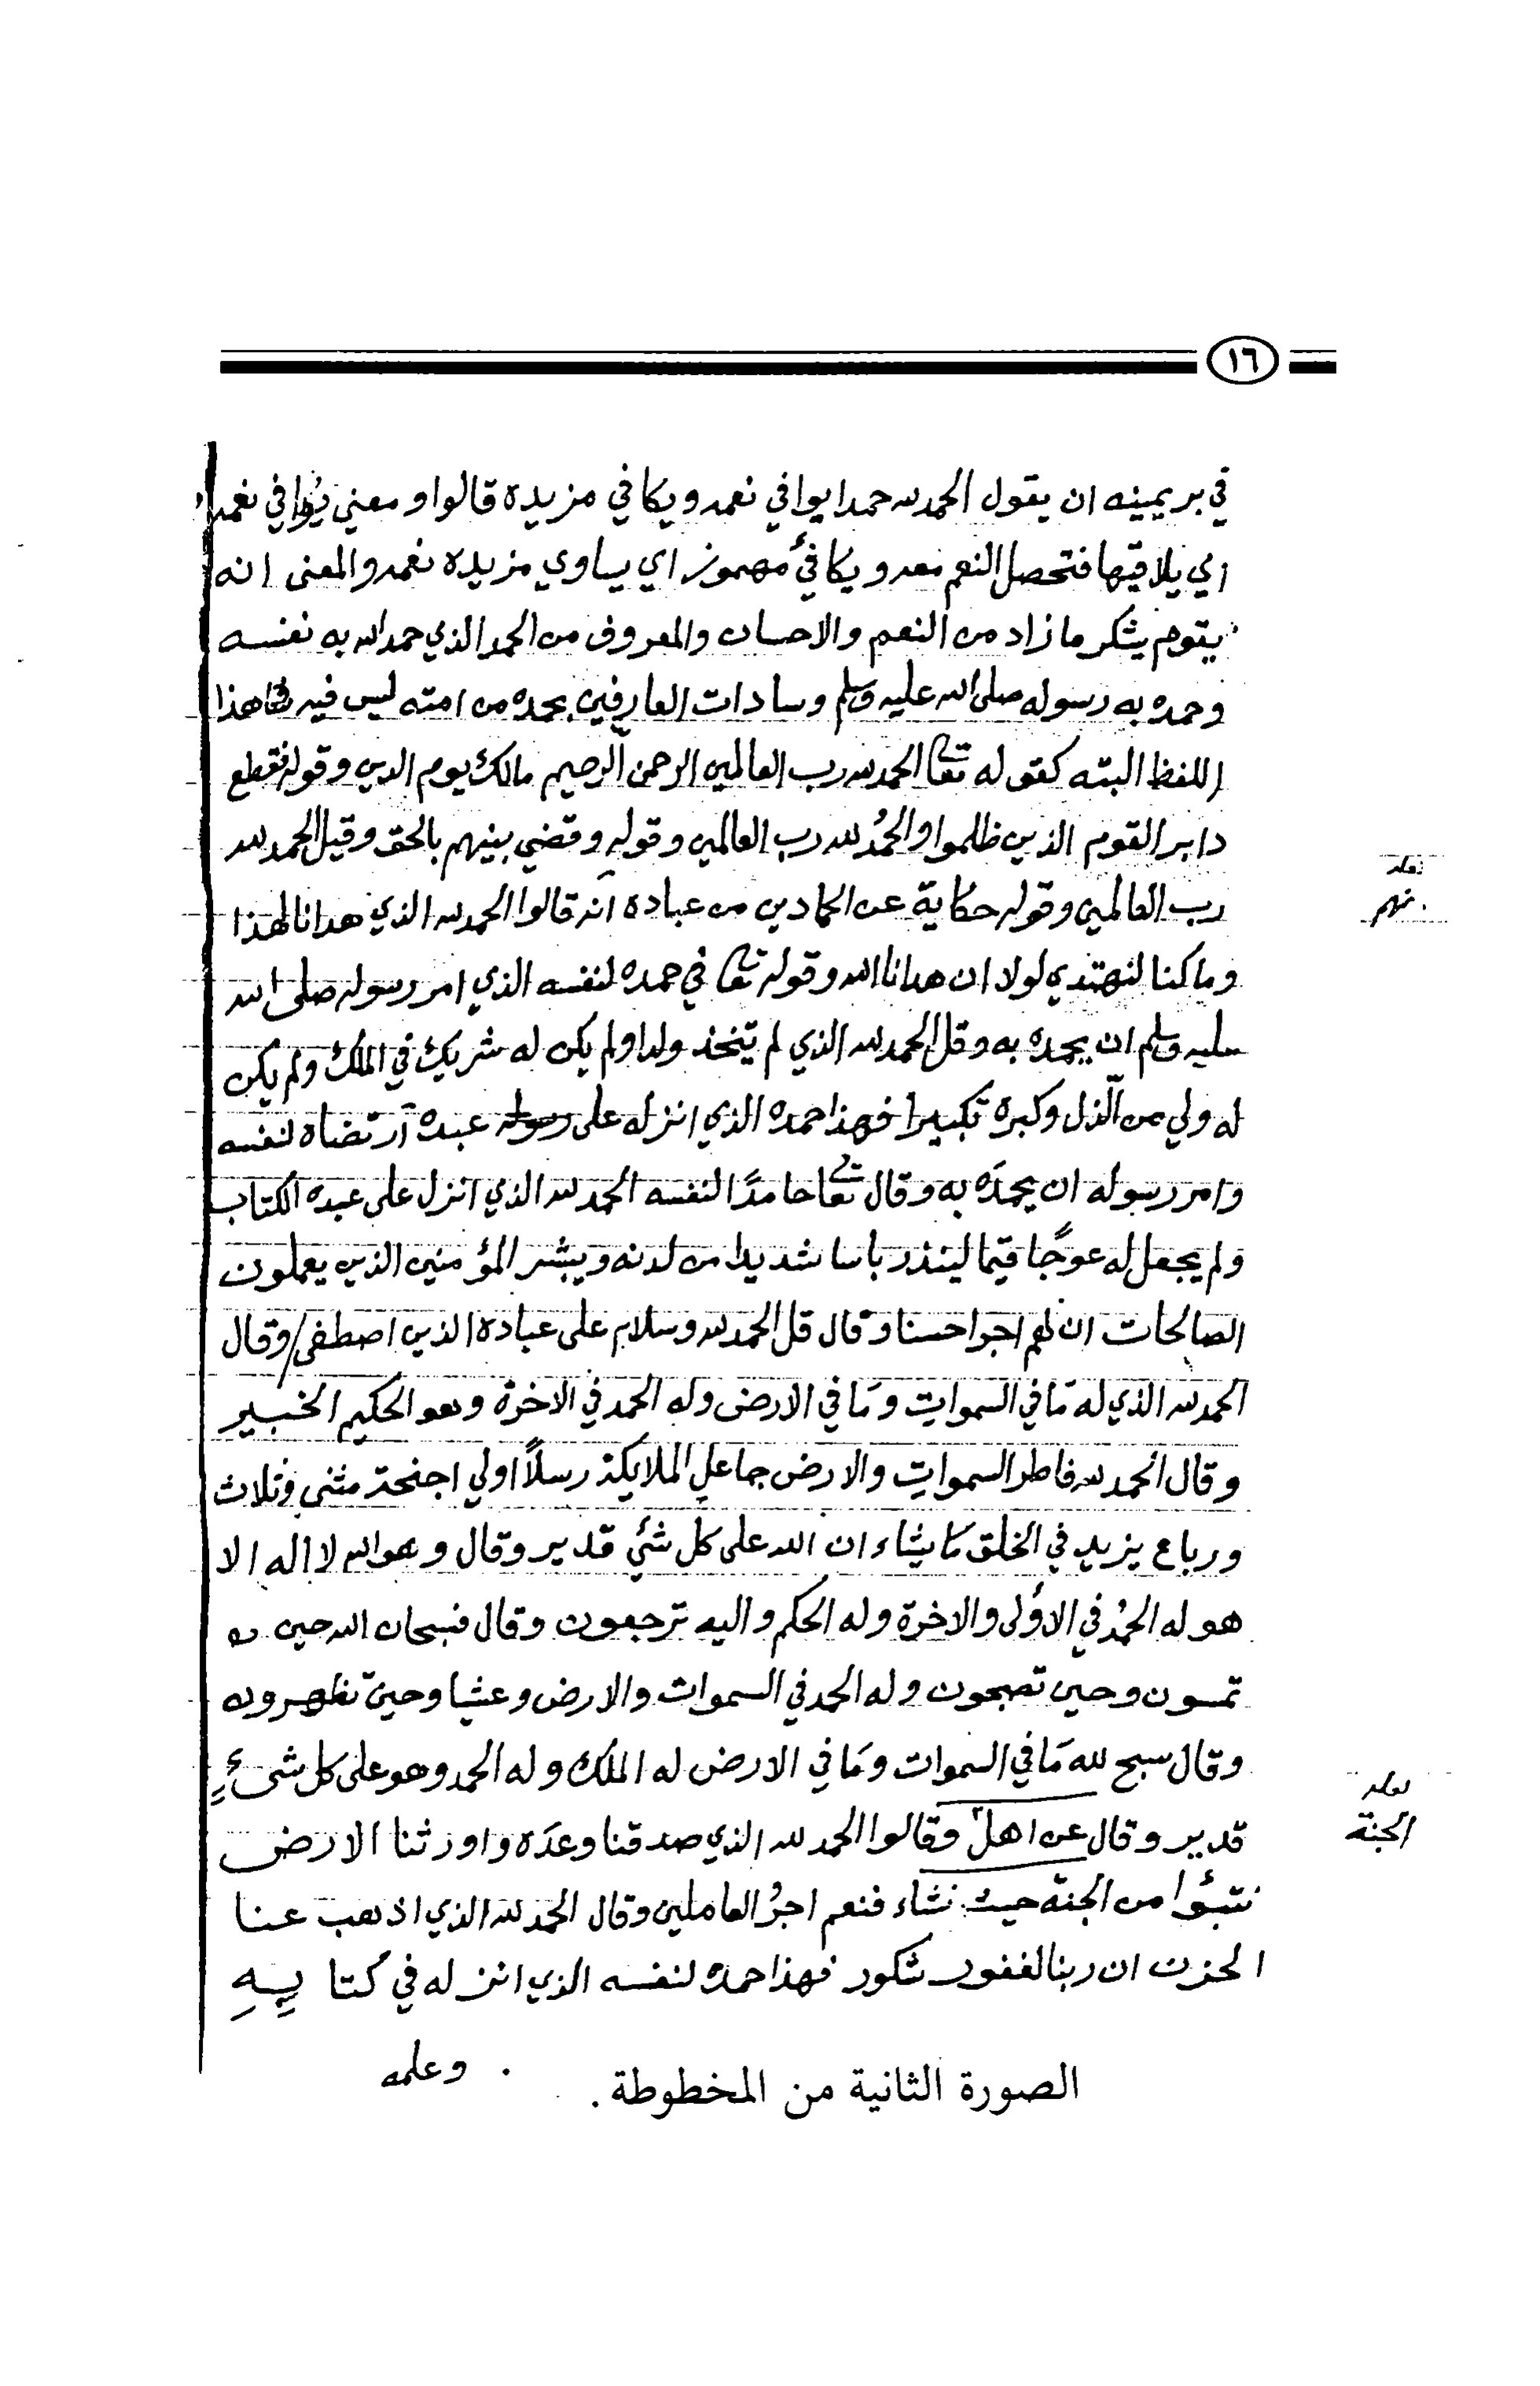 ١٦
في بر يمينه ان يقول الحمد لله حمدا يوافي نعمه ويكافي مزيده قالوا ومعنى يُوافي نعمه
اي يلاقيها فتحصل النعم معه ويكافئ مهموز اي يساوي مزيده نعمه والمعنى انه
يقوم بشكر ما زاد من النعم والاحسان والمعروف من الحمد الذي حمد الله به نفسه
وحمده به رسوله صلى الله عليه وسلم وسادات العارفين بحمده من امته ليس فيه هذا
اللفظ البته كقوله تعالى الحمد لله رب العالمين الرحمن الرحيم مالك يوم الدين وقوله فقطع
دابر القوم الذين ظلموا والحمدُ لله رب العالمين وقوله وقضي بينهم بالحق وقيل الحمد لله
رب العالمين وقوله حكاية عن الحمادين من عباده قالوا الحمد لله الذي هدانا لهذا
وما كنا لنهتدي لولا ان هدانا الله وقوله تعالى في حمده لنفسه الذي امر رسوله صلى الله
عليه وسلم ان يحمده به وقل الحمد لله الذي لم يتخذ ولدا ولم يكن له شريك في الملك ولم يكن
له ولي من الذّل وكبره تكبيرا فهذا حمده الذي انزله على رسوله عبده ارتضاه لنفسه
وامر رسوله ان يحمدَه به وقال تعالى حامدًا لنفسه الحمد لله الذي انزل على عبده الكتاب
ولم يجعل له عوجًا قيما لينذر باسا شديدا من لدنه ويبشر المؤمنين الذين يعملون
الصالحات ان لهم اجرا حسنا وقال قل الحمد لله وسلام على عباده الذين اصطفى وقال
الحمد لله الذي له مَا في السموات ومَا في الارض وله الحمد في الاخرة وهو الحكيم الخبير
وقال الحمد لله فاطر السموات والارض جاعل الملايكة رسلًا اولي اجنحة مثنى وثلاث
ورباع يزيد في الخلق ما يشاء ان الله على كل شئ قدير وقال وهو الله لا اله الا
هو له الحمدُ في الاوُلى والاخرة وله الحكم واليه ترجعون وقال فسبحان الله حين
تمسون وحين تصبحون وله الحمد في السموات والارض وعشيا وحين تظهرون
وقال سبح لله مَا في السموات ومَا في الارض له الملك وله الحمد وهو على كل شيءٍ
قدير وقال عن اهل وقالوا الحمد لله الذي صدقنا وعدَه واورثنا الارض
نتبؤا من الجنة حيث نشاء فنعم اجرُ العاملين وقال الحمد لله الذي اذهب عنا
الحزن ان ربنا لغفور شكور فهذا حمده لنفسه الذي انزله في كتابِهِ
وعلمه
لعله
الجنة
الصورة الثانية من المخطوطة.